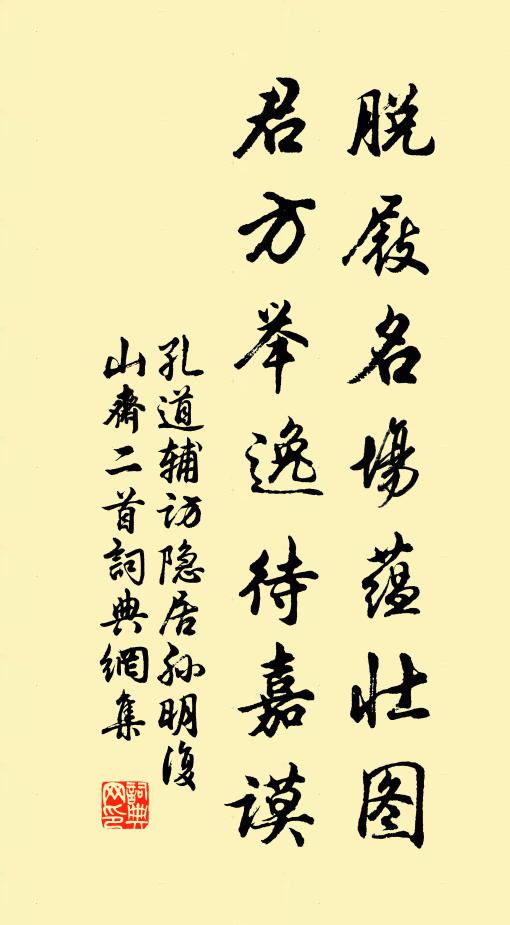 脱屐名場蕴壮图
君方举逸待嘉谟
孔道辅访隐居孙明復
山齋二首詞典網集
詞典网印